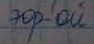 эор-ой